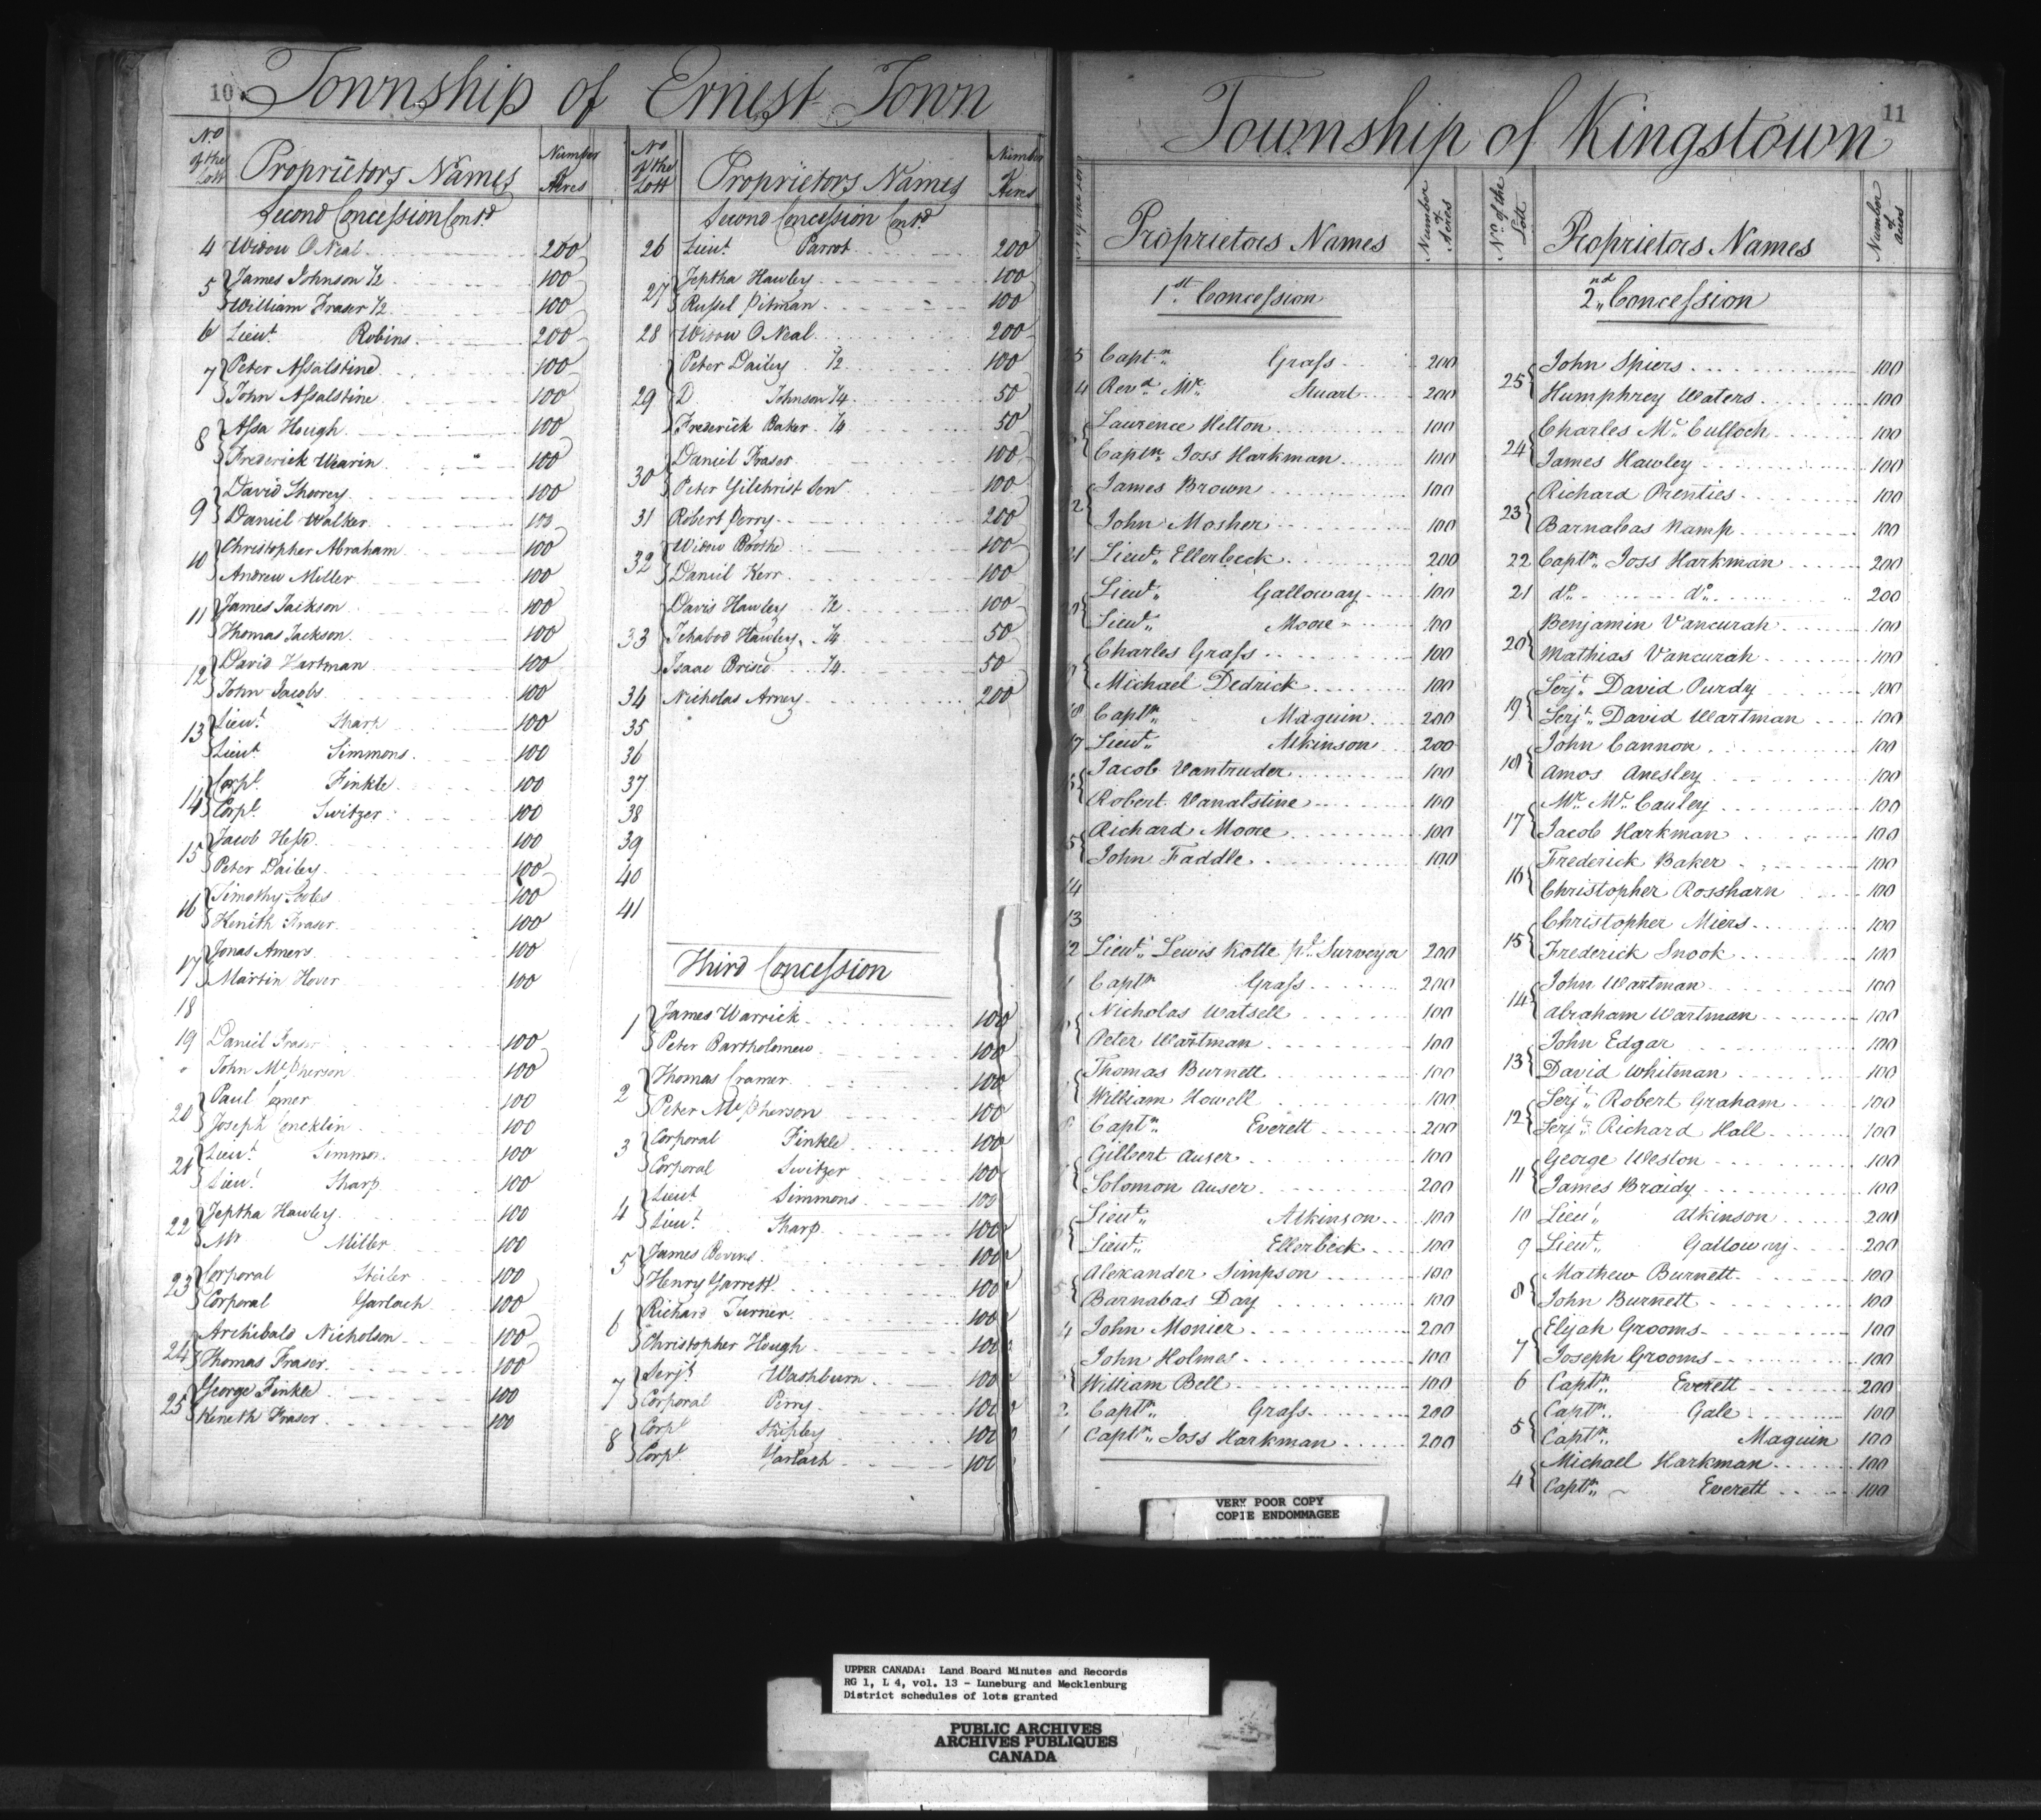 10
Township of Ernest Town
No of the Lott
Proprietors Names
Number Acres
Second Concession Contd
4 Widow O Neal 200
5 James Johnson 1/2 100
William Fraser 1/2 100
6 Lieut Robins 200
7 Peter Assalstine 100
John Assalstine 100
8 Assa Hough 100
Frederick Wearin 100
9 David Shorey 100
Daniel Walker 100
10 Christopher Abraham 100
Andrew Miller 100
11 James Jackson 100
Thomas Jackson 100
12 David Hartman 100
John Jacobs 100
13 Lieut Sharp 100
Lieut Simmons 100
14 Corpl Finkle 100
Corpl Switzer 100
15 Jacob Hess 100
Peter Dailey 100
16 Timothy 100
Kenith Fraser 100
17 Jonas Amers 100
Martin Hover 100
18
19 Daniel Fraser 100
John McPherson 100
20 Paul 100
Joseph Concklin 100
21 Lieut Simmon 100
Lieut Sharp 100
22 Jeptha Hawley 100
Mr Miller 100
23 Corporal 100
Corporal Garlach 100
24 Archibald Nicholson 100
Thomas Fraser 100
25 George Finkle 100
Keneth Fraser 100
No of the Lott
Proprietors Names
Number Acres
Second Concession Contd
26 Lieut Parrot 200
27 Jeptha Hawley 100
Russel Pitman 100
28 Widow O Neal 200
Peter Dailey 1/2 100
29 D Johnson 1/4 50
Frederick Baker 1/4 50
30 Daniel Fraser 100
Peter Gilchrist Senr 100
31 Robert Perry 200
32 Widow Boothe 100
Daniel Kerr 100
Davis Hawley 1/2 100
33 Ichabod Hawley 1/4 50
Isaac Brisco 1/4 50
34 Nicholas Amey 200
35
36
37
38
39
40
41
Third Concession
1 James Warrick 100
Peter Bartholomew 100
2 Thomas Cramer 100
Peter McPherson 100
3 Corporal Finkle 100
Corporal Switzer 100
4 Lieut Simmons 100
Lieut Sharp 100
5 James Bevens 100
Henry Garrett 100
6 Richard Turner 100
Christopher Hough 100
7 Serjt Washburn 100
Corporal Perry 100
8 Corpl Shipley 100
Corpl Garlach 100
11
Township of Kingstown
Proprietors Names
Number of Acres
1st Concession
25 Captn Grass 200
4 Revd Mr Stuart 200
Laurence Hilton 100
Captn Joss Harkman 100
2 James Brown 100
John Mosher 100
21 Lieut Ellerbeck 200
Lieut Galloway 100
Lieut Moore 100
Charles Grass 100
Michael Dedrick 100
18 Captn Maquin 200
17 Lieut Atkinson 200
Jacob Vantruder 100
Robert Vanalstine 100
5 Richard Moore 100
John Faddle 100
14
13
12 Lieut Lewis Kotte pt Surveyor 200
1 Captn Grass 200
Nicholas Watsell 100
Peter Wartman 100
Thomas Burnett 100
William Howell 100
8 Captn Everett 200
Gilbert Auser 100
Solomon Auser 200
Lieut Atkinson 100
Lieut Ellerbeck 100
5 Alexander Simpson 100
Barnabas Day 100
4 John Monier 200
John Holmes 100
William Bell 100
2 Captn Grass 200
1 Captn Joss Harkman 200
No of the Lott
Proprietors Names
Number of acres
2nd Concession
25 John Spiers 100
Humphrey Waters 100
24 Charles Mc Culloch 100
James Hawley 100
23 Richard Prenties 100
Barnabas Namp 100
22 Captn Joss Harkman 200
21 do do 200
20 Benjamin Vancurah 100
Mathias Vancurah 100
19 Serjt David Purdy 100
Serjt David Wartman 100
18 John Cannon 100
Amos Anesley 100
17 Mr Mc Cauley 100
Jacob Harkman 100
16 Frederick Baker 100
Christopher Rossharn 100
15 Christopher Miers 100
Frederick Snook 100
14 John Wartman 100
Abraham Wartman 100
13 John Edgar 100
David Whitman 100
12 Serjt Robert Graham 100
Serjt Richard Hall 100
11 George Weston 100
James Braidy 100
10 Lieut Atkinson 200
9 Lieut Galloway 200
8 Mathew Burnett 100
John Burnett 100
7 Elijah Grooms 100
Joseph Grooms 100
6 Captn Everett 200
5 Captn Gale 100
Captn Maquin 100
4 Michael Harkman 100
Captn Everett 100
VERY POOR COPY
COPIE ENDOMMAGEE
UPPER CANADA: Land Board Minutes and Records
RG 1, L 4, vol. 13 - Luneburg and Mecklenburg
District schedules of lots granted
PUBLIC ARCHIVES
ARCHIVES PUBLIQUES
CANADA